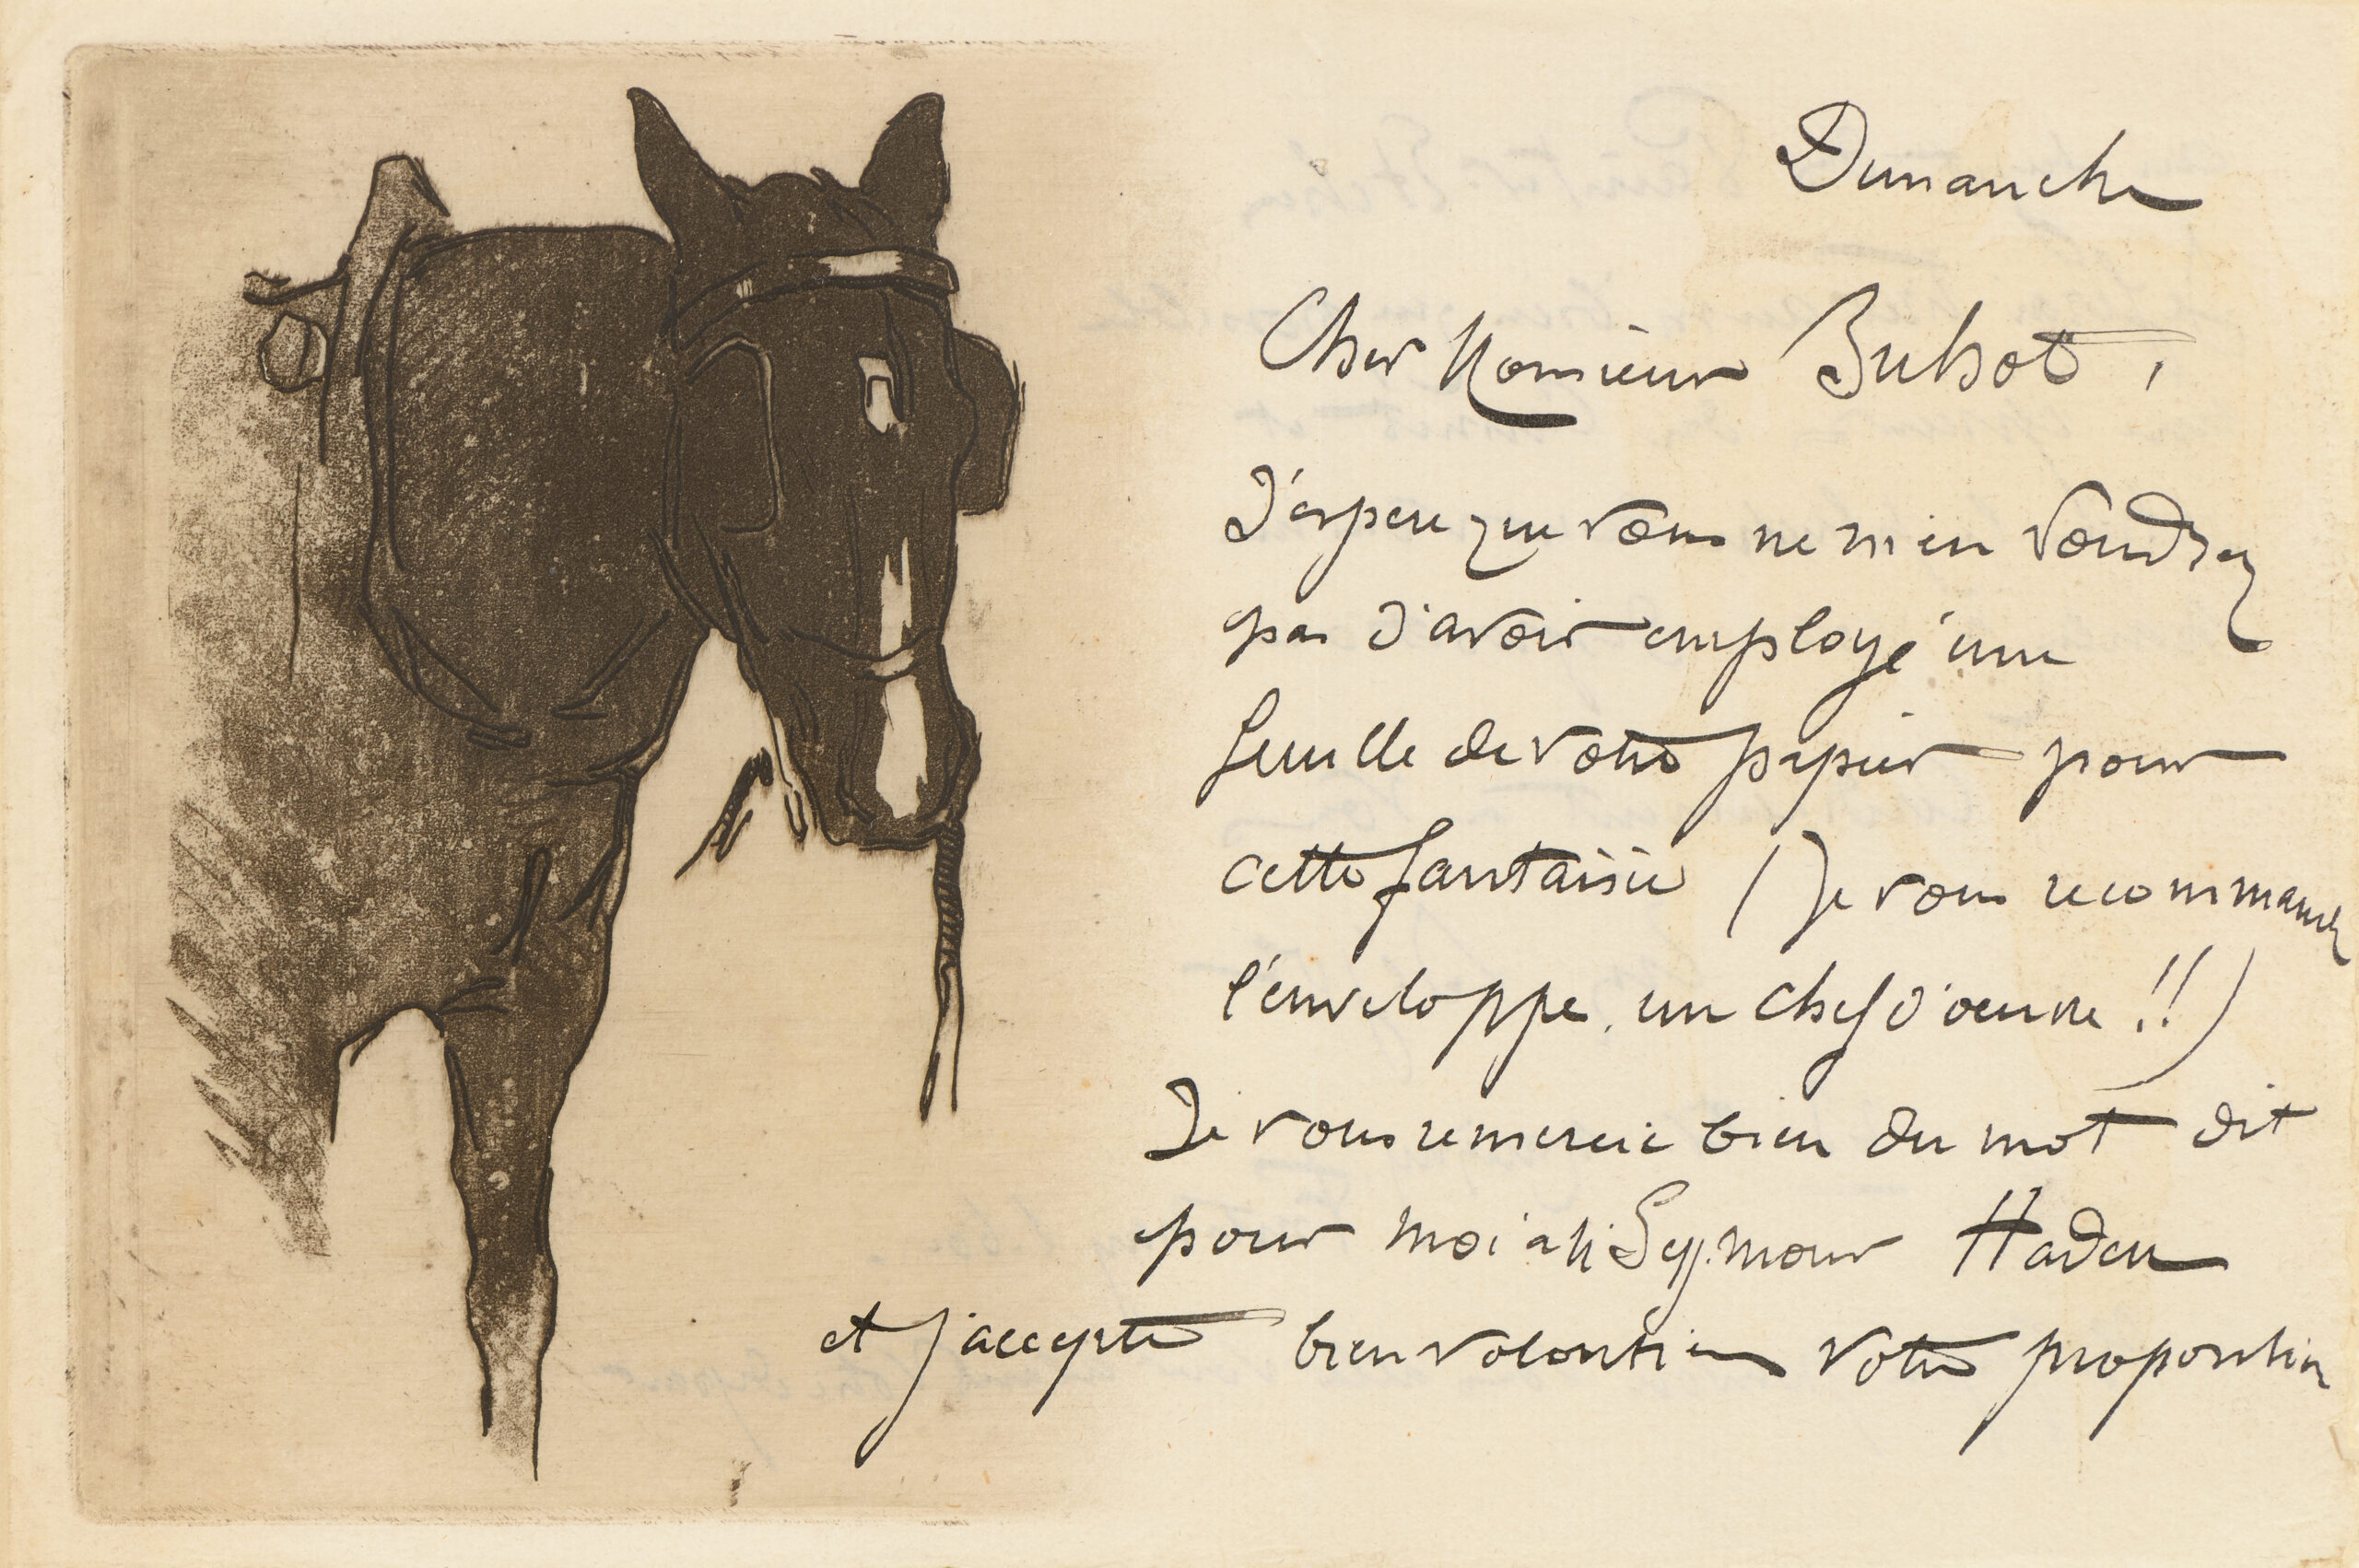 Dimanche
Cher Monsieur Buhot,
J'espere que vous ne m'en voudrez
pas d'avoir employé une
feuille de votre papier pour
cette fantaisie (Je vous recommande
l'enveloppe, un chef d'oeuvre !!)
Je vous remercie bien du mot dit
pour moi à M Seymour Haden
et j'accepte bien volontiers votre proposition